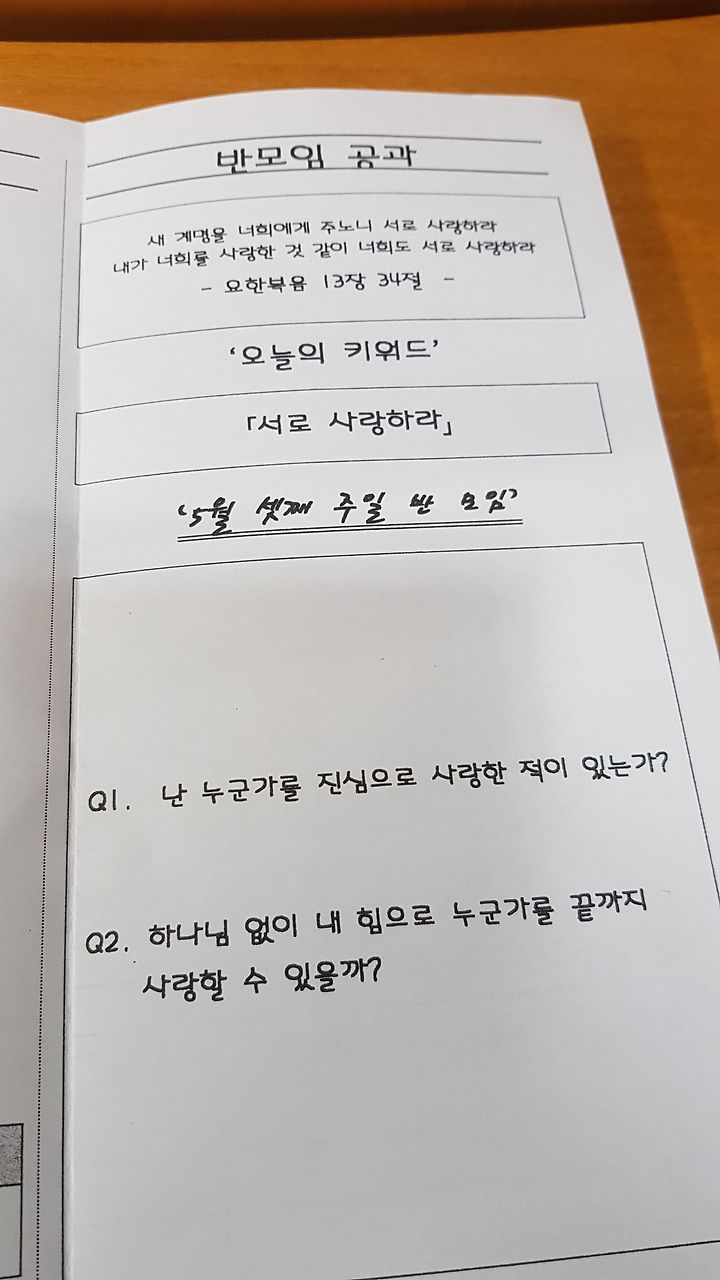 반모임 공과
새 계명을 너희에게 주노니 서로 사랑하라
내가 너희를 사랑한 것 같이 너희도 서로 사랑하라
- 요한복음 13장 34절 -
‘오늘의 키워드’
「서로 사랑하라」
‘5월 셋째 주일 반 모임’
Q1. 난 누군가를 진심으로 사랑한 적이 있는가?
Q2. 하나님 없이 내 힘으로 누군가를 끝까지
사랑할 수 있을까?